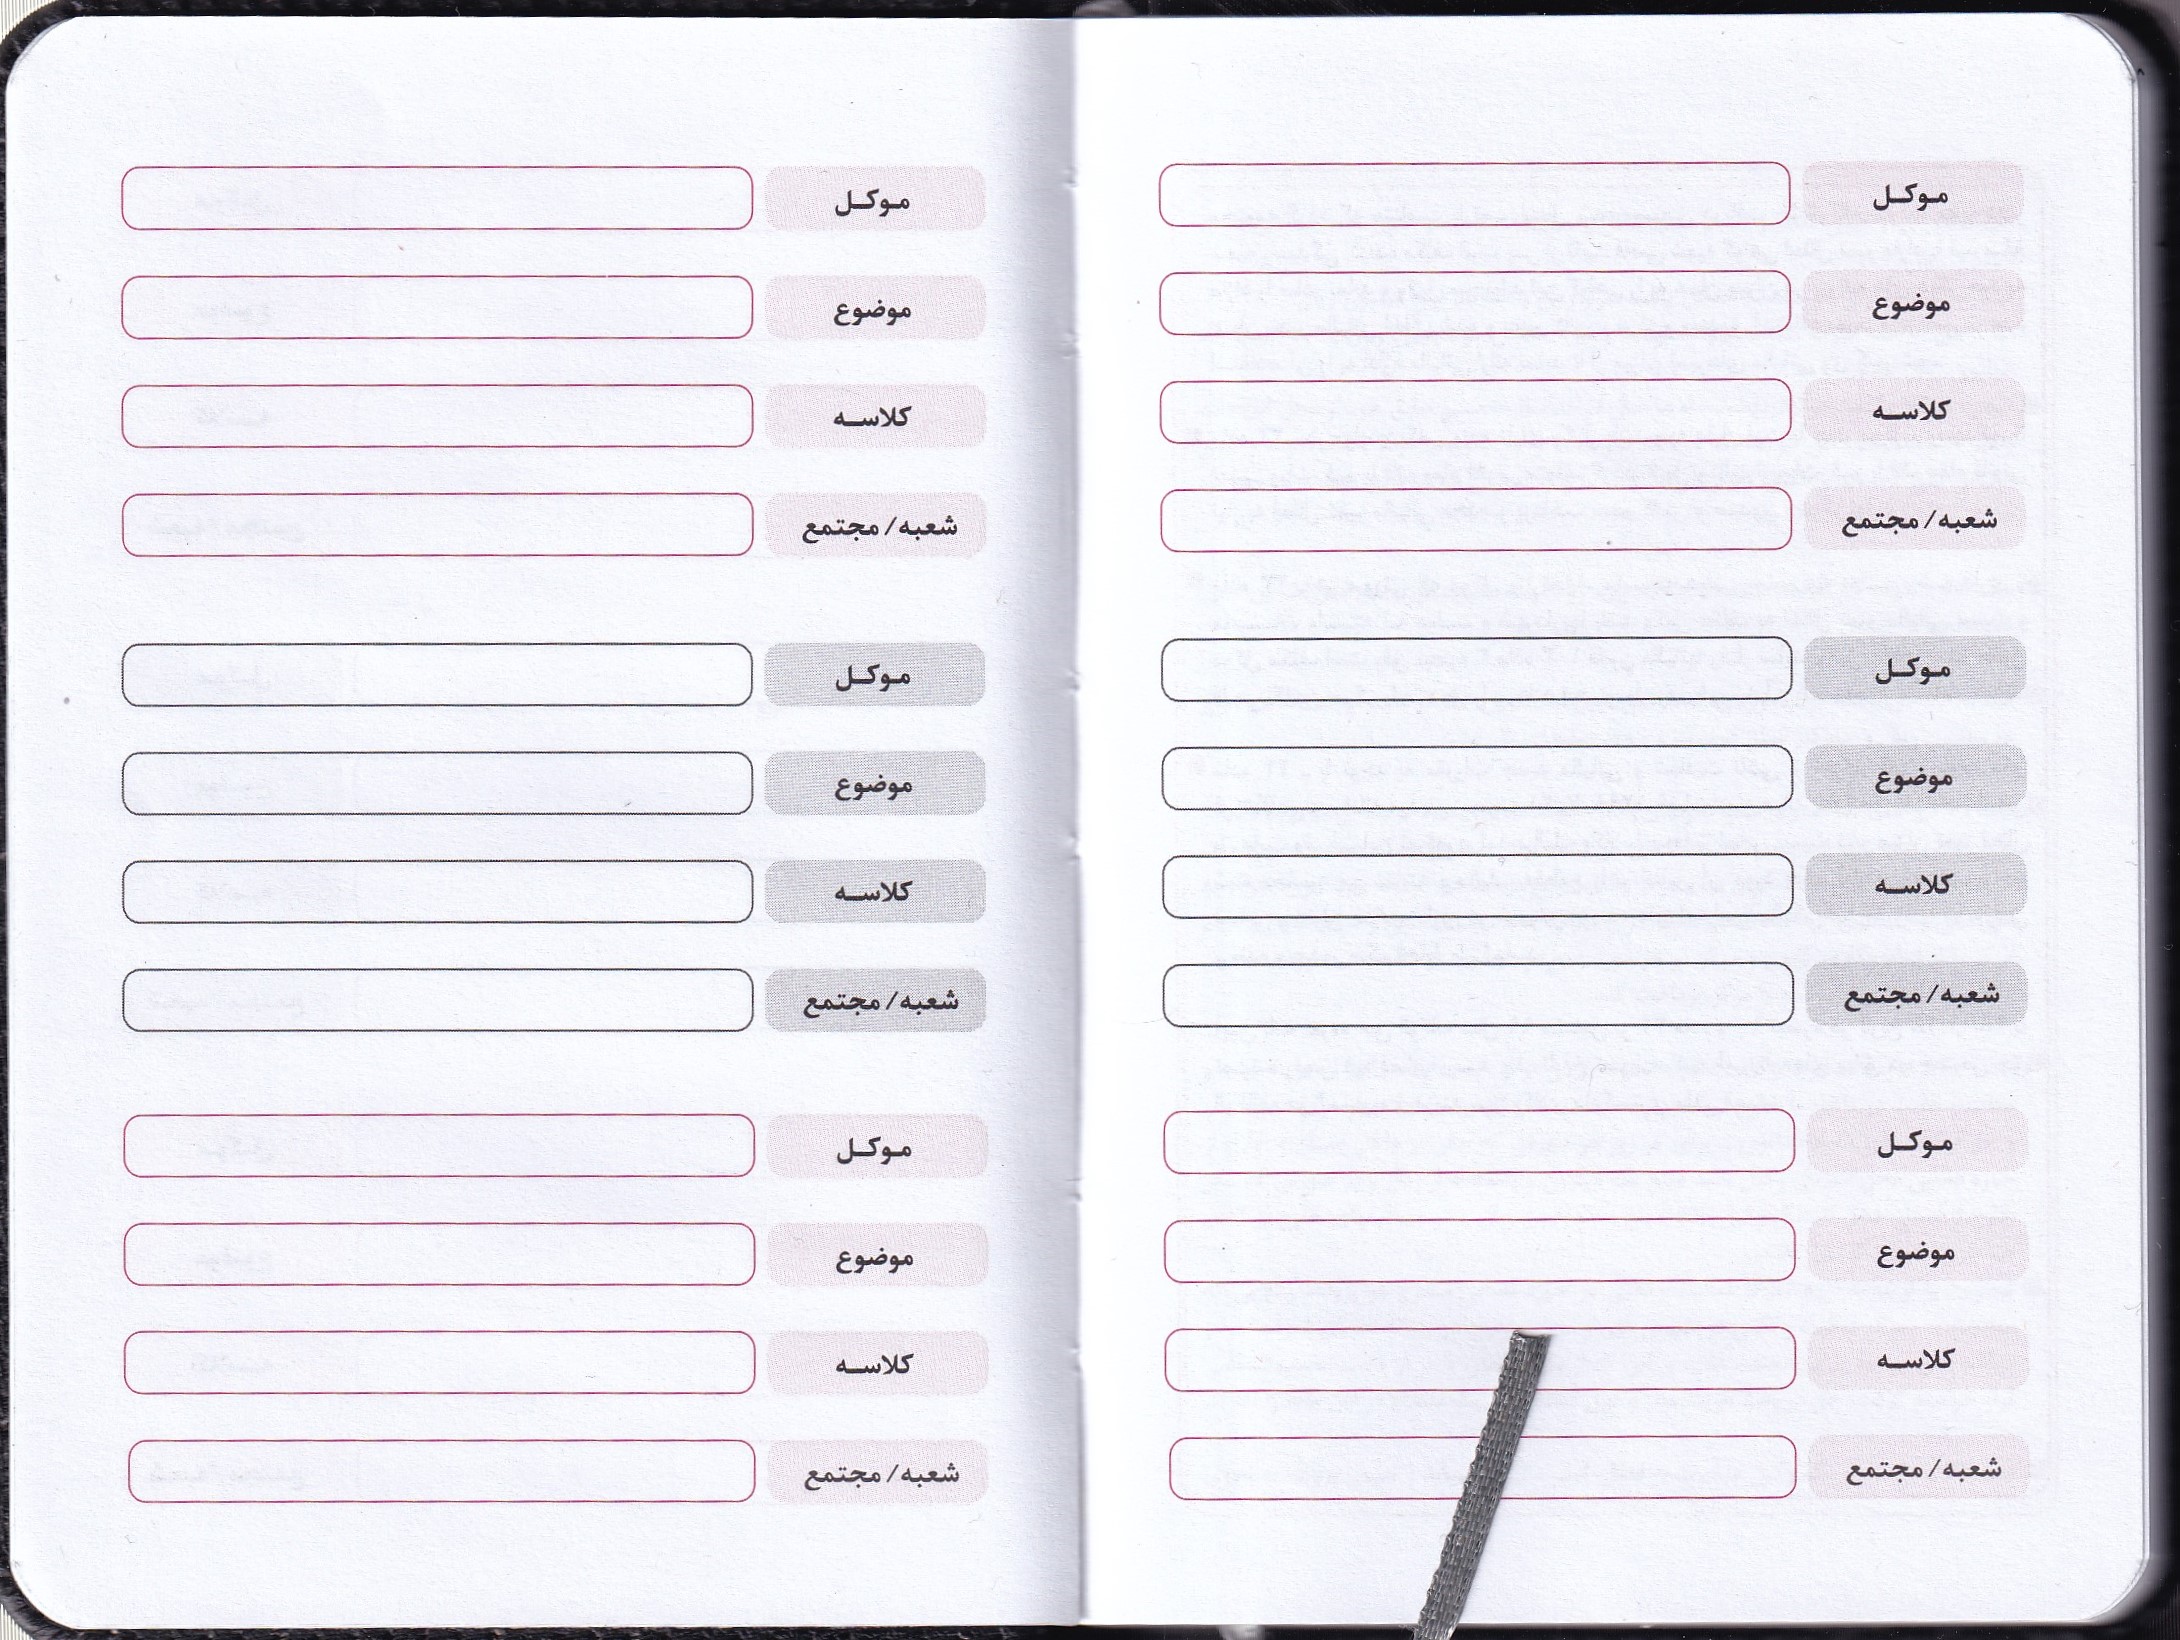 موکل
موضوع
کلاسه
شعبه / مجتمع
موکل
موضوع
کلاسه
شعبه / مجتمع
موکل
موضوع
کلاسه
شعبه / مجتمع
موکل
موضوع
کلاسه
شعبه / مجتمع
موکل
موضوع
کلاسه
شعبه / مجتمع
موکل
موضوع
کلاسه
شعبه / مجتمع